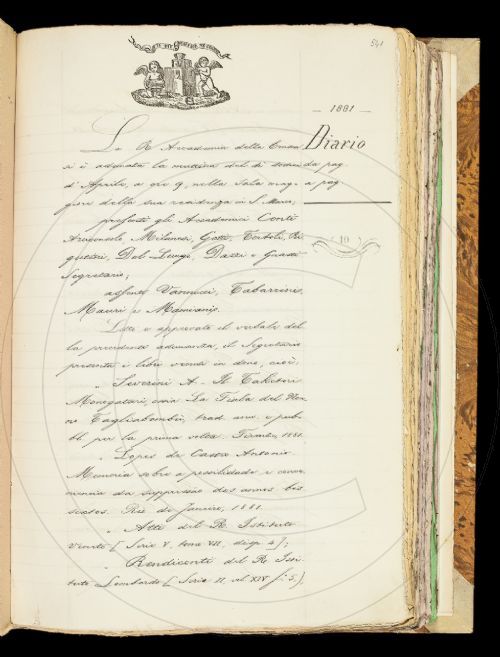 541
— 1881 —
Diario
da pag.
a pag.
10
La R. Accademia della Crusca
si è adunata la mattina del dì
d'Aprile, a ore 9, nella Sala mag-
giore della sua residenza in S. Marco;
presenti gli Accademici Conti
Arciconsolo, Milanesi, Gotti, Tortoli, Ri-
gutini, Del Lungo, Dazzi e Guasti
Segretario;
assenti Vannucci, Tabarrini,
Mauri e Mamiani.
Letto e approvato il verbale del-
la precedente adunanza, il Segretario
presenta i libri venuti in dono, cioè:
Severini A. - Il Taketori
Monogatari, ossia La Fiaba del Non-
no Tagliabambù, trad. ann. e pub-
bl. per la prima volta. Firenze, 1881.
Lopes da Costa Antonio
Memoria sobre a possibilidade e conve-
niencia da suppressão dos annos bis-
sextos. Rio de Janeiro, 1881.
Atti del R. Istituto
Veneto [Serie V, tomo VII, disp. 4];
Rendiconti del R. Isti-
tuto Lombardo [Serie II, vol. XIV f. 5].